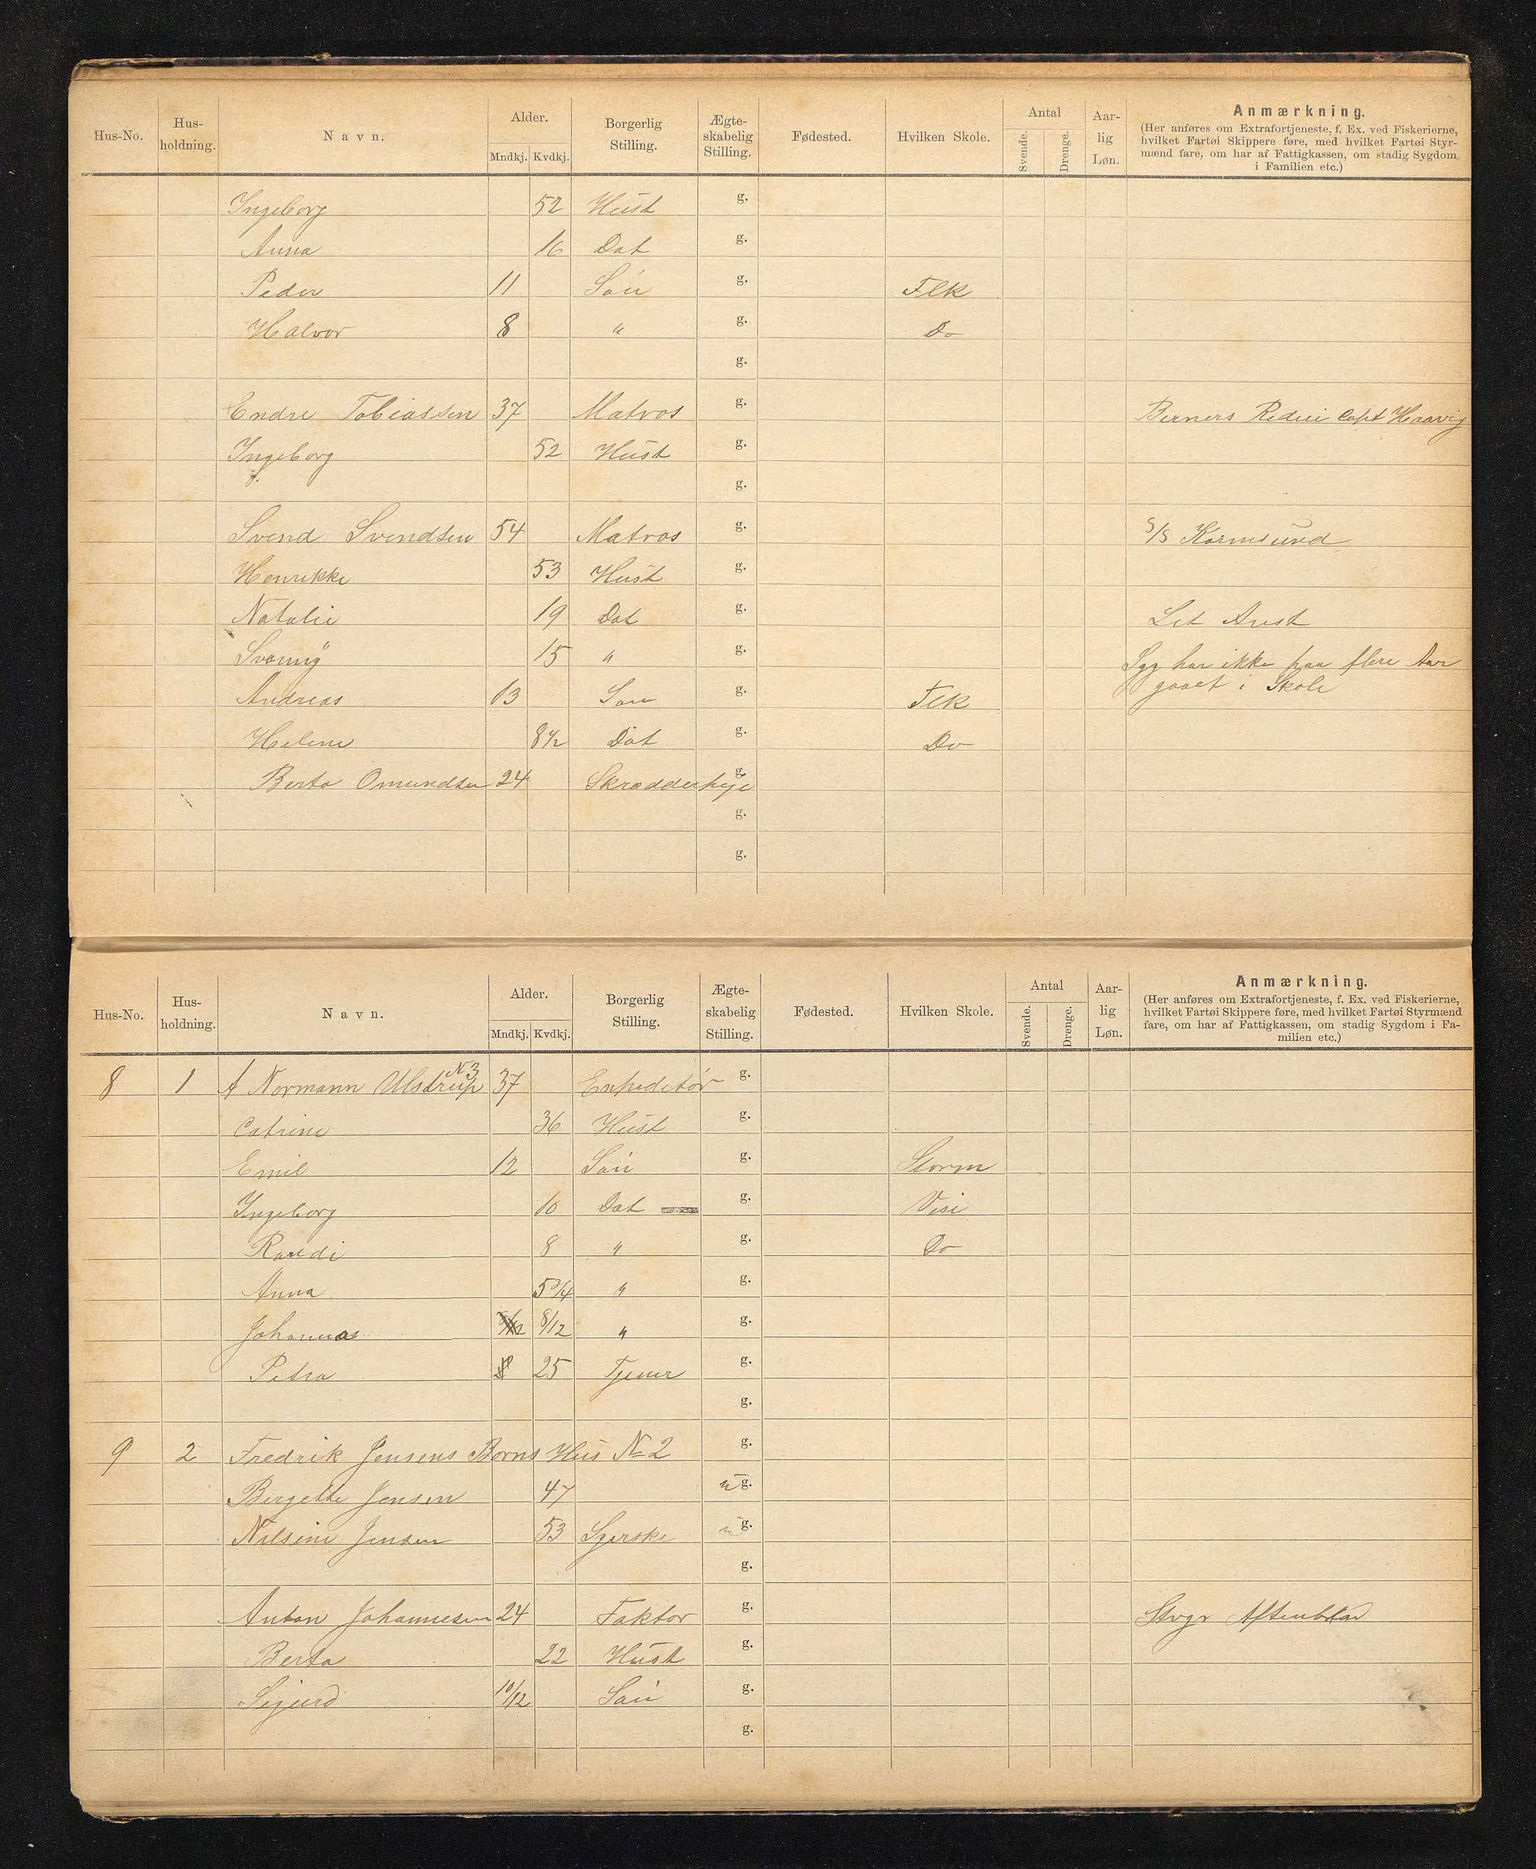 Hus-No. Hus-holdning. Navn. Alder. Mndkj. Kvdkj. Borgerlig Stilling. Ægte-skabelig Stilling. Fødested. Hvilken Skole. Antal Svende. Drenge. Aar-lig Løn. Anmærkning.
(Her anføres om Extrafortjeneste, f. Ex. ved Fiskerierne,
hvilket Fartøi Skippere føre, med hvilket Fartøi Styr-
mænd fare, om har af Fattigkassen, om stadig Sygdom
i Familien etc.)
Ingeborg 52 Hust g.
Anna 16 Dat g.
Peder 11 Søn g. Flk
Halvor 8 " g. Do
g.
Endre Tobiassen 37 Matros g. Berners Rederi Capt Haavig
Ingeborg 52 Hust g.
g.
Svend Svendsen 54 Matros g. S/S Karmsund
Henrikke 53 Hust g.
Natalie 19 Dat g.
Svanny 15 " g. Syg har ikke paa flere Aar
gaaet i Skole
Andreas 13 Søn g. Flk
Helene 8½ Dat g. Do
Berta Omundsen 24 g.
g.
g.
Hus-No. Hus-holdning. Navn. Alder. Mndkj. Kvdkj. Borgerlig Stilling. Ægte-skabelig Stilling. Fødested. Hvilken Skole. Antal Svende. Drenge. Aar-lig Løn. Anmærkning.
(Her anføres om Extrafortjeneste, f. Ex. ved Fiskerierne,
hvilket Fartøi Skippere føre, med hvilket Fartøi Styrmænd
fare, om har af Fattigkassen, om stadig Sygdom i Fa-
milien etc.)
8 1 A Normann Ulstrup N 3 37 Expeditør g.
Catrine 36 Hust g.
Emil 12 Søn g. Storm
Ingeborg 10 Dat g. Visi
Randi 8 " g. Do
Anna 5¾ " g.
Johannas 8/12 " g.
Petra 25 Tjener g.
g.
9 2 Fredrik Jensens Børns Hus N 2 g.
Bergette Jensen 47 u g.
Nilsine Jensen 53 Syerske u g.
g.
Anton Johannesen 24 Faktor g. Stvgr Aftenblad
Berta 22 Hust g.
Sigurd 10/12 Søn g.
g.